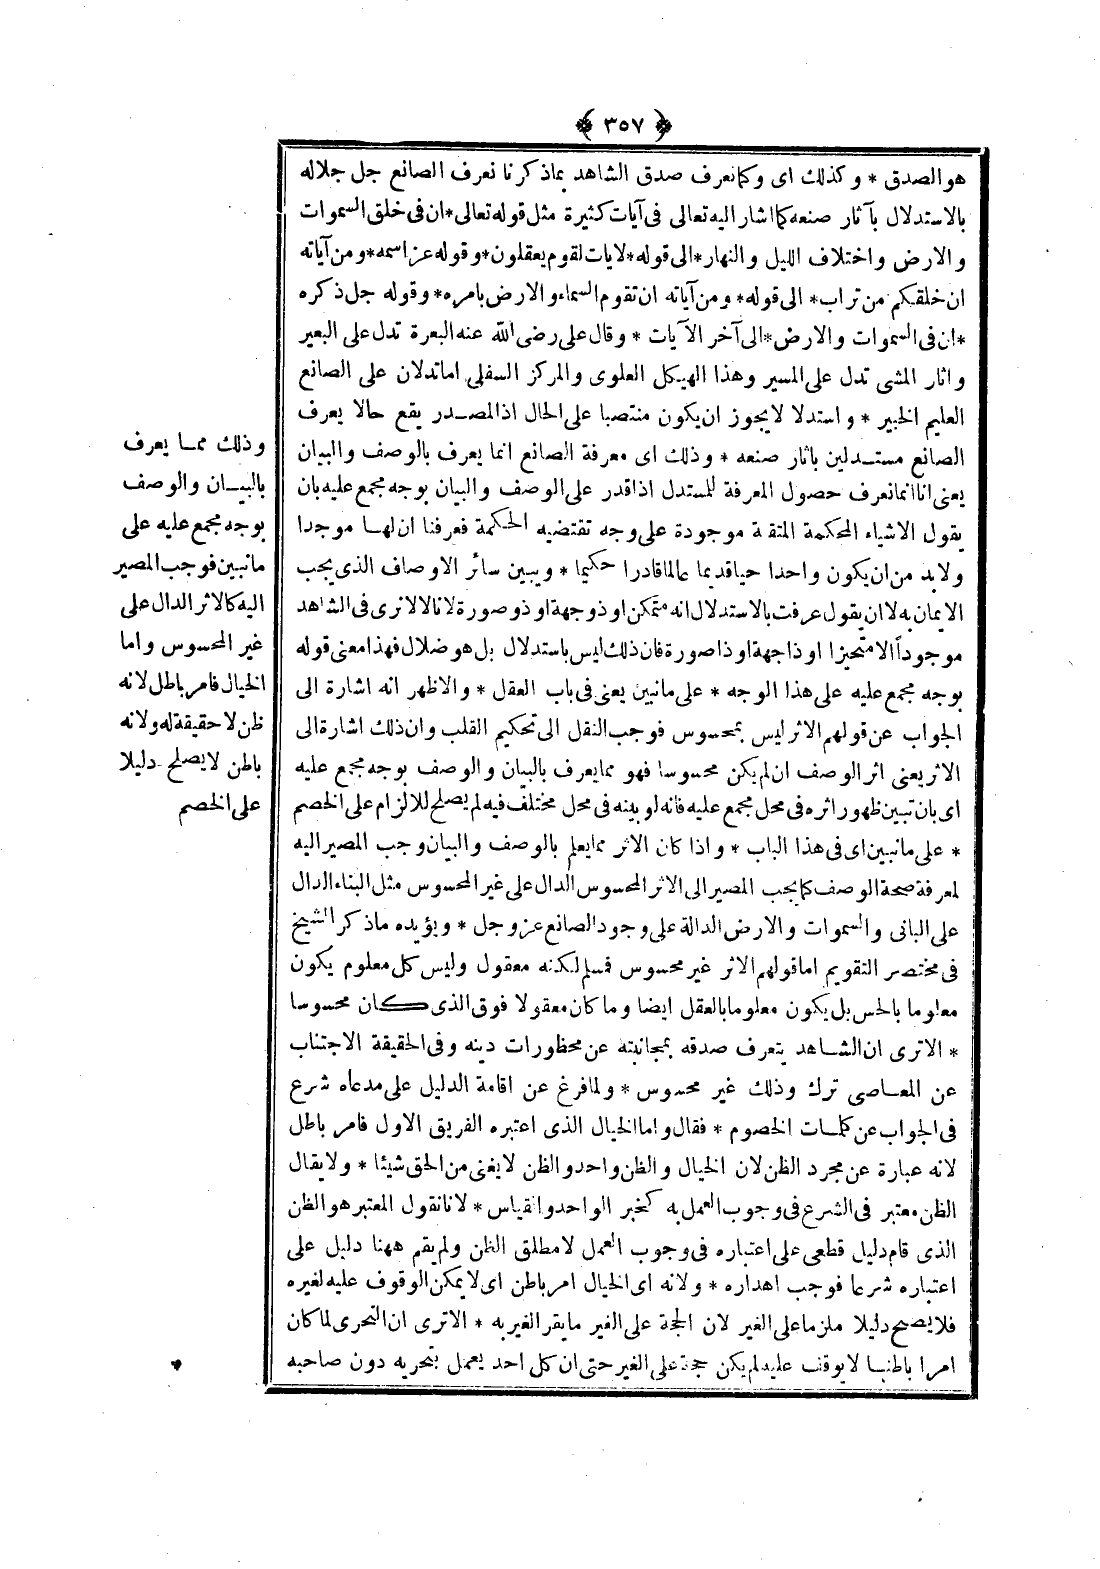 ﴿ ٣٥٧ ﴾
هو الصدق * وكذلك اى وكما نعرف صدق الشاهد بما ذكرنا نعرف الصانع جل جلاله
بالاستدلال بآثار صنعه كما اشار اليه تعالى فى آيات كثيرة مثل قوله تعالى * ان فى خلق السموات
والارض واختلاف الليل والنهار * الى قوله * لايات لقوم يعقلون * وقوله عز اسمه * ومن آياته
ان خلقكم من تراب * الى قوله * ومن آياته ان تقوم السماء والارض بامره * وقوله جل ذكره
* ان فى السموات والارض * الى آخر الآيات * وقال على رضى الله عنه البعرة تدل على البعير
واثار المشى تدل على المسير وهذا الهيكل العلوى والمركز السفلى اما تدلان على الصانع
العليم الخبير * واستدلا لا يجوز ان يكون منتصبا على الحال اذ المصدر يقع حالا يعرف
الصانع مستدلين باثار صنعه * وذلك اى معرفة الصانع انما يعرف بالوصف والبيان
يعنى انا انما نعرف حصول المعرفة للمستدل اذا قدر على الوصف والبيان بوجه مجمع عليه بان
يقول الاشياء المحكمة المتقنة موجودة على وجه تقتضيه الحكمة فعرفنا ان لها موجدا
ولابد من ان يكون واحدا حيا قديما عالما قادرا حكيما * ويبين سائر الاوصاف الذى يجب
الايمان به لا ان يقول عرفت بالاستدلال انه متمكن او ذو جهة او ذو صورة لانا لا نرى فى الشاهد
موجوداً الا متحيزا او ذا جهة او ذا صورة فان ذلك ليس باستدلال بل هو ضلال فهذا معنى قوله
بوجه مجمع عليه على هذا الوجه * على ما نبين يعنى فى باب العقل * والاظهر انه اشارة الى
الجواب عن قولهم الاثر ليس بمحسوس فوجب النقل الى تحكيم القلب وان ذلك اشارة الى
الاثر يعنى اثر الوصف ان لم يكن محسوسا فهو مما يعرف بالبيان والوصف بوجه مجمع عليه
اى بان تبين ظهور اثره فى محل مجمع عليه فانه لو بينه فى محل مختلف فيه لم يصلح للالزام على الخصم
* على ما نبين اى فى هذا الباب * واذا كان الاثر مما يعلم بالوصف والبيان وجب المصير اليه
لمعرفة صحة الوصف كما يجب المصير الى الاثر المحسوس الدال على غير المحسوس مثل البناء الدال
على البانى والسموات والارض الدالة على وجود الصانع عز وجل * ويؤيده ما ذكر الشيخ
فى مختصر التقويم اما قولهم الاثر غير محسوس فمسلم لكنه معقول وليس كل معلوم يكون
معلوما بالحس بل يكون معلوما بالعقل ايضا وما كان معقولا فوق الذى كان محسوسا
* الا ترى ان الشاهد يتعرف صدقه بمجانبته عن محظورات دينه وفى الحقيقة الاجتناب
عن المعاصى ترك وذلك غير محسوس * ولما فرغ عن اقامة الدليل على مدعاه شرع
فى الجواب عن كلمات الخصوم * فقال واما الخيال الذى اعتبره الفريق الاول فامر باطل
لانه عبارة عن مجرد الظن لان الخيال والظن واحد والظن لا يغنى من الحق شيئا * ولا يقال
الظن معتبر فى الشرع فى وجوب العمل به كخبر الواحد والقياس * لانا نقول المعتبر هو الظن
الذى قام دليل قطعى على اعتباره فى وجوب العمل لا مطلق الظن ولم يقم ههنا دليل على
اعتباره شرعا فوجب اهداره * ولانه اى الخيال امر باطن اى لا يمكن الوقوف عليه لغيره
فلا يصح دليلا ملزما على الغير لان الحجة على الغير ما يقر الغير به * الا ترى ان التحرى لما كان
امرا باطنيا لا يوقف عليه لم يكن حجة على الغير حتى ان كل احد يعمل بتحريه دون صاحبه
وذلك مما يعرف
بالبيان والوصف
بوجه مجمع عليه على
ما نبين فوجب المصير
اليه كالاثر الدال على
غير المحسوس واما
الخيال فامر باطل لانه
ظن لا حقيقة له ولانه
باطن لا يصلح دليلا
على الخصم